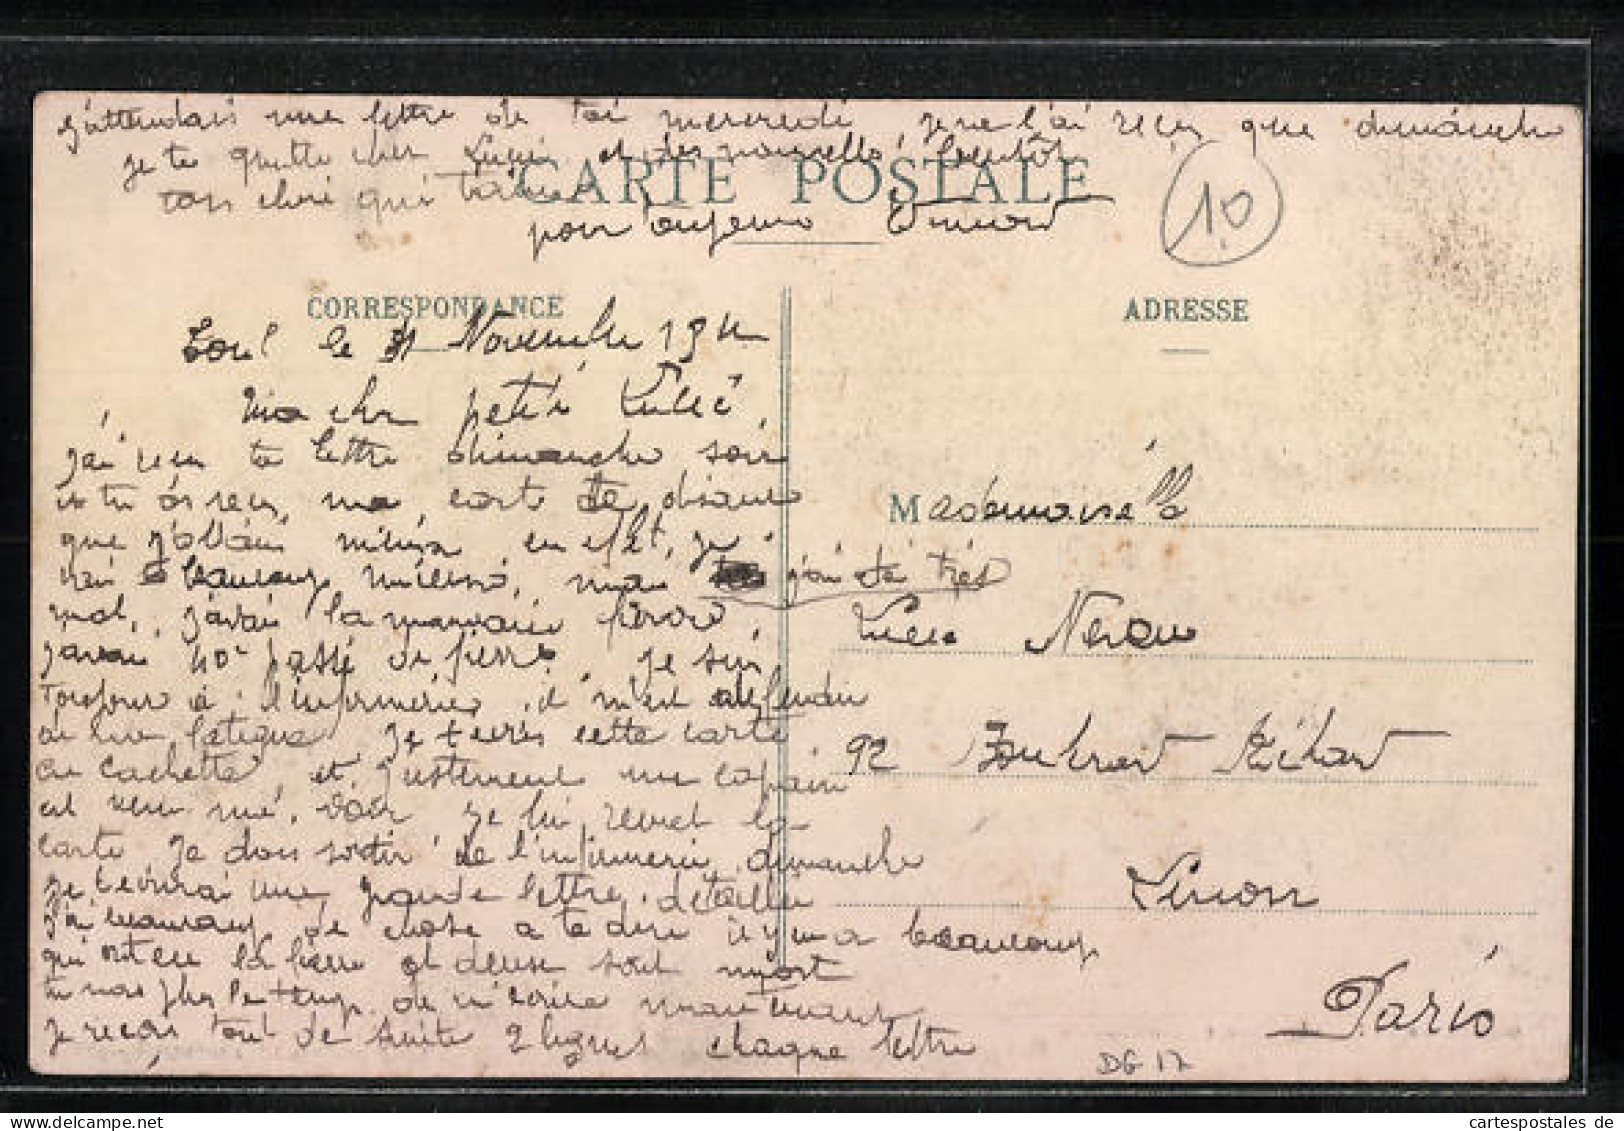 j'attendais une lettre de toi mercredi je ne l'ai reçu que dimanche
je te quitte cher et des nouvelles bientôt
ton cheri qui t'aime
CARTE POSTALE
pour toujours
10
CORRESPONDANCE
ADRESSE
Toul le Novembre 191
Ma cher petite Lucie
j'ai reçu ta lettre dimanche soir
et tu as reçu ma carte te disant
que j'allais mieux, en efet, je
vais beaucoup mieux, mais j'ai été très
mal, j'avais la mauvaise
40° passé de fièvre je suis
toujours à l'infirmerie, il m'est deffendu
la fatigue je t'ecris cette carte
en cachette, et justement un copain
est venu me voir je lui remet la
carte, je dois sortir de l'infirmerie dimanche
je t'ecrirai une grande lettre détailler
j'ai beaucoup de chose a te dire il y en a beaucoup
qui ont eu la fièvre et deux sont mort
tu nas plus le temps de m'écrire maintenant
je reçois tout de suite 2 lignes chaque lettre
Mademoiselle
Lucie
92 Boulevard Richard
Lenoir
Paris
DG 17
cartespostales de